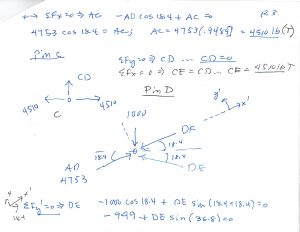 ↔ ΣFx=0 ⇒ AC  -AD cos 18.4 + AC = 0
4753 cos 18.4 = AC; AC = 4753(.9489) = 4510 lb (T)
Pin C
ΣFy=0 ⇒ CD ... CD=0
ΣFx=0 ⇒ CE=CD... CE=4510 lb T
CD
4510 4510
C
Pin D
y' x'
1000 DF
18.4 18.4
AD DE
4753
x'
18.4
ΣFy'=0 ⇒ DE -1000 cos 18.4 + DE sin(18.4+18.4)=0
-949 + DE sin(36.8)=0